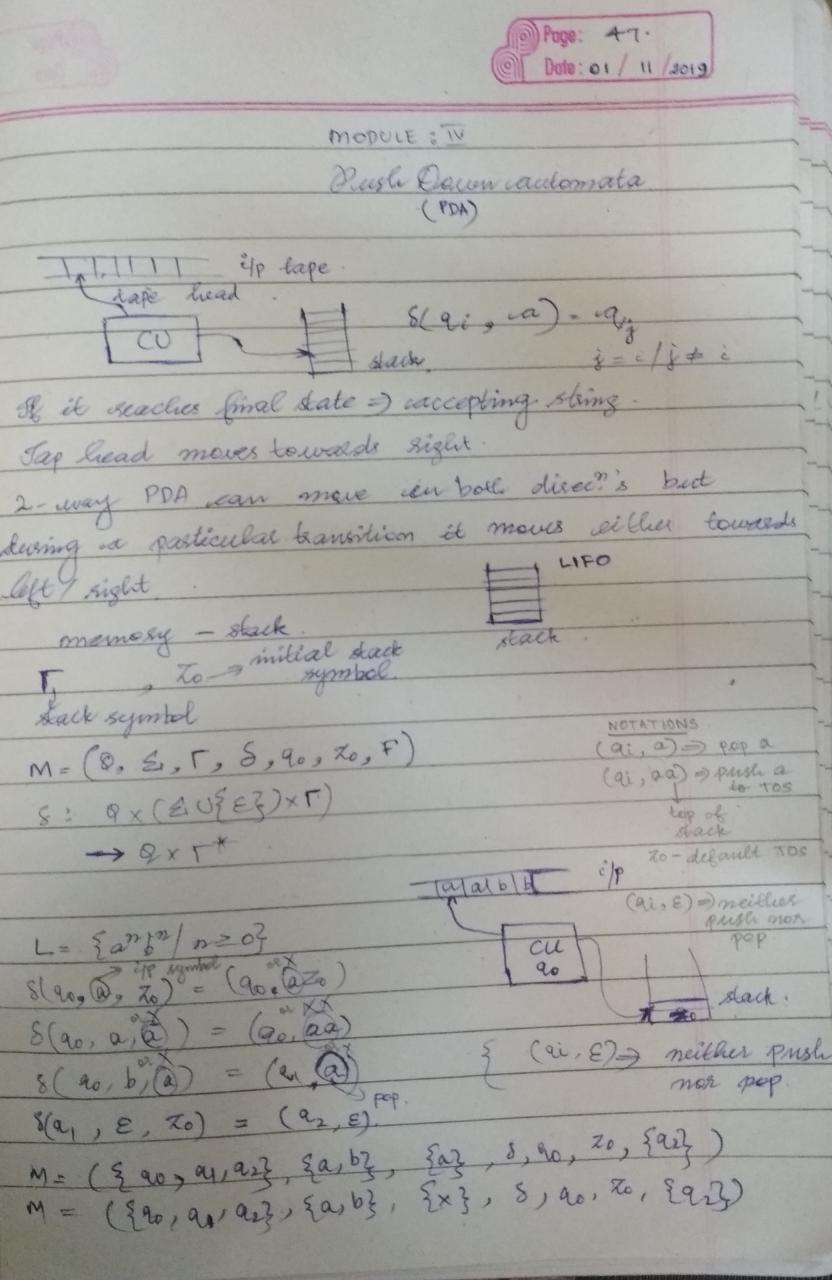 Page: 47.
Date: 01 / 11 / 2019
MODULE : IV
Push Down automata
(PDA)
i/p tape.
tape head
CU
stack.
δ(qi, a) = qj
j = i / j ≠ i
If it reaches final state ⇒ accepting string.
Tap head moves towards right.
2-way PDA can move in both direcⁿ's but
during a particular transition it moves either towards
left / right
LIFO
stack
memory - stack.
Γ, z0 → initial stack symbol.
stack symbol
M = (Q, Σ, Γ, δ, q0, z0, F)
δ: Q × (Σ ∪ {ε}) × Γ)
→ Q × Γ*
NOTATIONS
(qi, a) ⇒ pop a
(qi, aa) ⇒ push a to TOS
top of stack
z0 - default TOS
(qi, ε) ⇒ neither push nor pop
a a b b
i/p
CU
q0
z0
stack.
L = {aⁿbⁿ / n ≥ 0}
i/p symbol
δ(q0, a, z0) = (q0, az0)
or X
δ(q0, a, a) = (q0, aa)
or X
or XX
δ(q0, b, a) = (q1, a)
or X
pop.
{ (qi, ε) ⇒ neither push nor pop.
δ(q1, ε, z0) = (q2, ε).
M = ({q0, q1, q2}, {a, b}, {a}, δ, q0, z0, {q2})
M = ({q0, q1, q2}, {a, b}, {x}, δ, q0, z0, {q2})